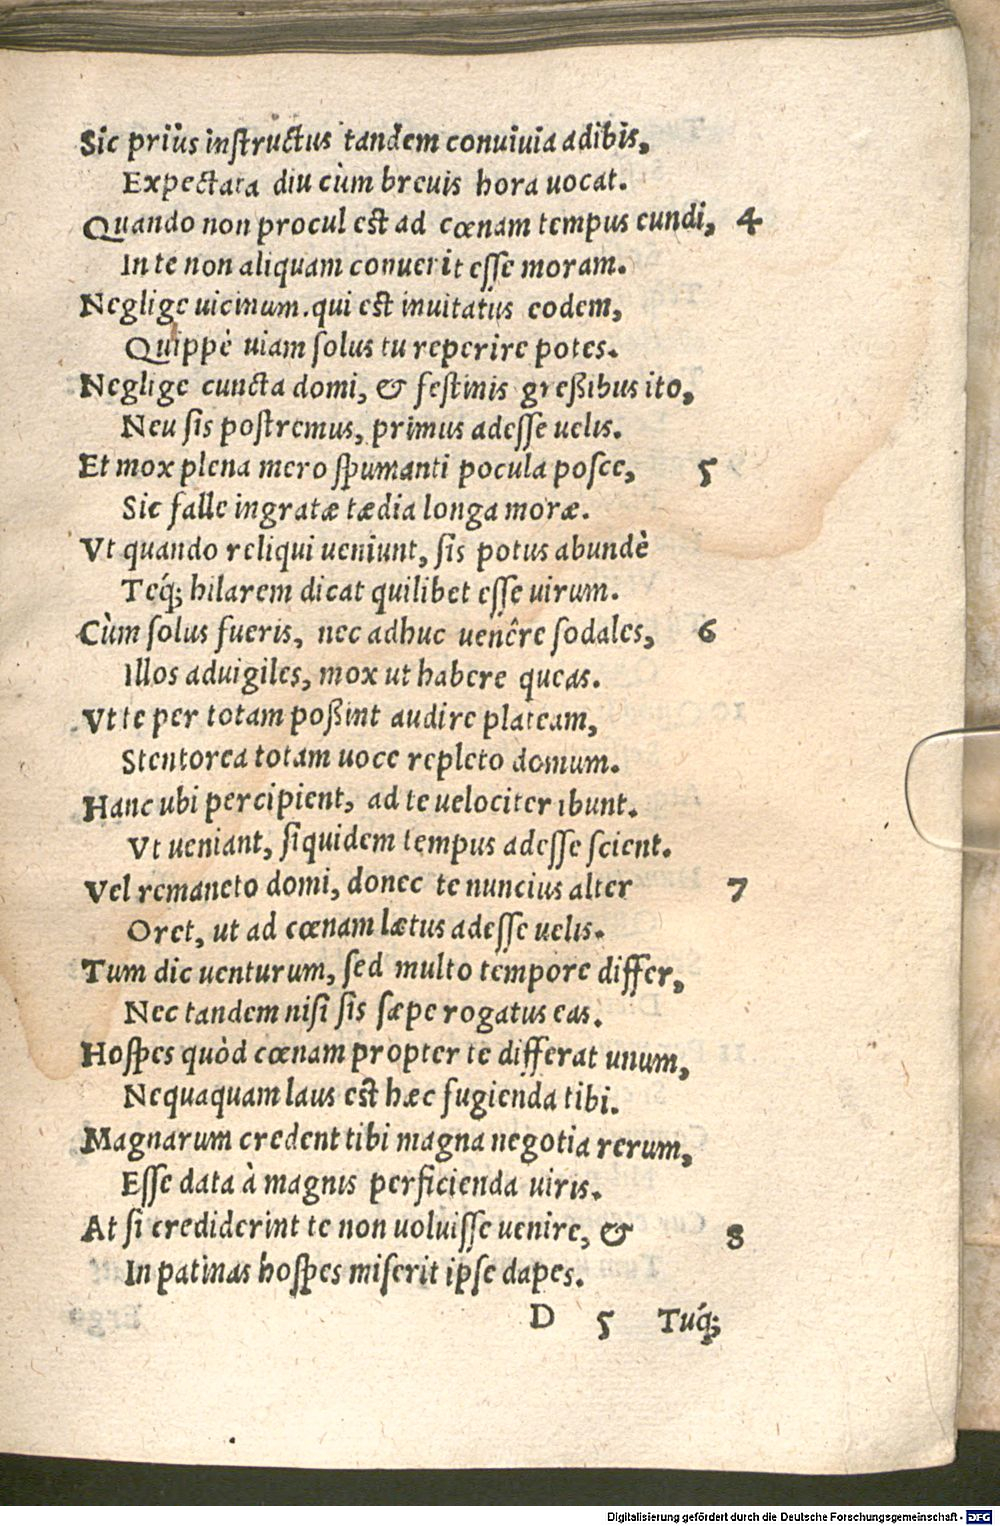 Sic priùs instructus tandem conuiuia adibis,
Expectata diu cùm breuis hora uocat.
Quando non procul est ad cœnam tempus eundi, 4
In te non aliquam conuerit esse moram.
Neglige uicinum. qui est inuitatus eodem,
Quippè uiam solus tu reperire potes.
Neglige cuncta domi, & festinis greßibus ito,
Neu sis postremus, primus adesse uelis.
Et mox plena mero spumanti pocula posce, 5
Sic falle ingratæ tædia longa moræ.
Vt quando reliqui ueniunt, sis potus abundè
Teq́; hilarem dicat quilibet esse uirum.
Cùm solus fueris, nec adhuc uenêre sodales, 6
Illos aduigiles, mox ut habere queas.
Vt te per totam poßint audire plateam,
Stentorea totam uoce repleto domum.
Hanc ubi percipient, ad te uelociter ibunt.
Vt ueniant, siquidem tempus adesse scient.
Vel remaneto domi, donec te nuncius alter 7
Oret, ut ad cœnam lætus adesse uelis.
Tum dic uenturum, sed multo tempore differ,
Nec tandem nisi sis sæpe rogatus eas.
Hospes quòd cœnam propter te differat unum,
Nequaquam laus est hæc fugienda tibi.
Magnarum credent tibi magna negotia rerum,
Esse data à magnis perficienda uiris.
At si crediderint te non uoluisse uenire, & 8
In patinas hospes miserit ipse dapes.
D 5 Tuq́;
Digitalisierung gefördert durch die Deutsche Forschungsgemeinschaft - DFG